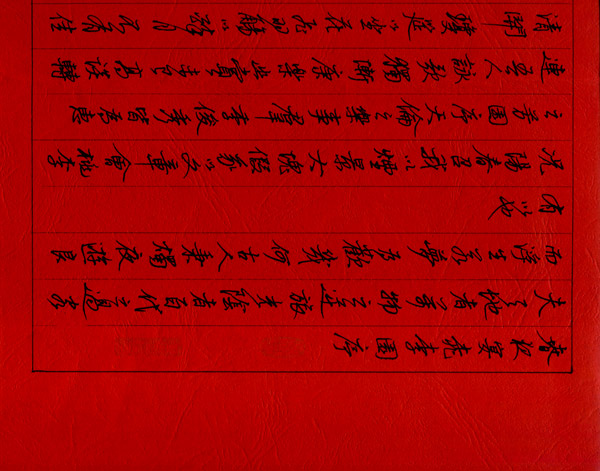 春夜宴桃李園序
夫天地者萬物之逆旅光陰者百代之過客
而浮生若夢為歡幾何古人秉燭夜遊良
有以也
況陽春召我以煙景大塊假我以文章會桃李
之芳園序天倫之樂事羣季俊秀皆為惠
連吾人詠歌獨慚康樂幽賞未已高談轉
清開瓊筵以坐花飛羽觴以醉月不有佳